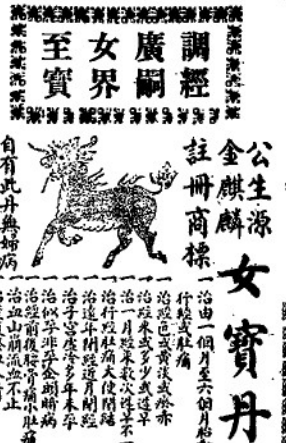 調經
廣嗣
女界
至寶
公生源
金麒麟
女寶丹
註冊商標
自有此丹無婦病
一治由一個月至六個月胎
行經或肚痛
一治經色或黃淡或瘀赤
一治經來或多少或遲早
一治一月經來數次連年不
一治行經肚痛大便閉結
一治遠年閉經近月閉經
一治子宮虛冷多年未孕
一治似孕非孕金剛臍病
一治經前後腰骨痛小肚痛
一治血山崩流血不止